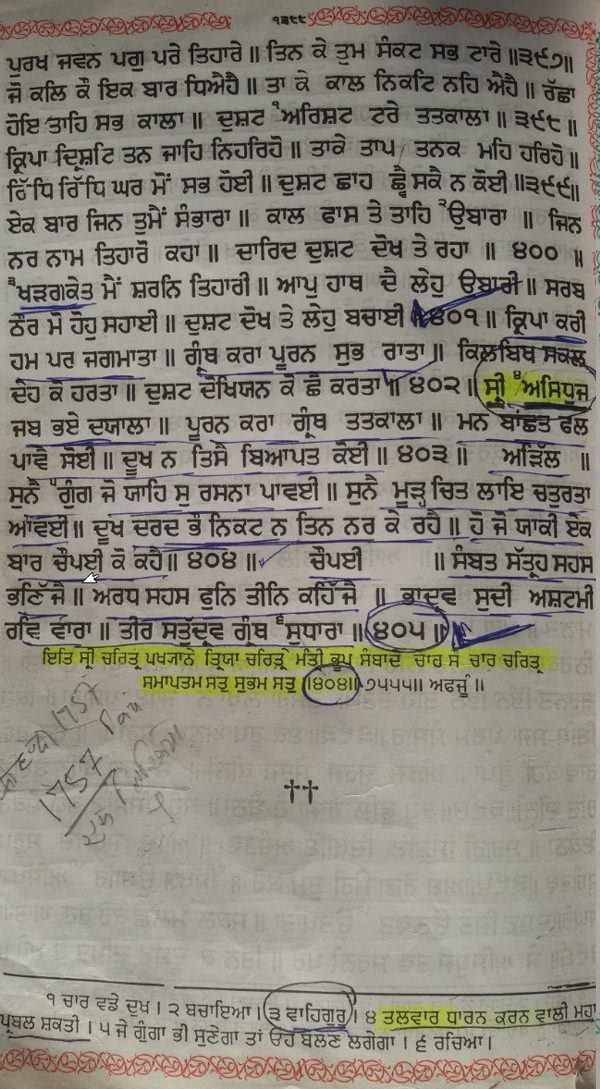 ੧੩੯੯
ਪੁਰਖ ਜਵਨ ਪਗੁ ਪਰੇ ਤਿਹਾਰੇ ॥ ਤਿਨ ਕੇ ਤੁਮ ਸੰਕਟ ਸਭ ਟਾਰੇ ॥੩੯੭॥
ਜੋ ਕਲਿ ਕੌ ਇਕ ਬਾਰ ਧਿਐਹੈ ॥ ਤਾ ਕੇ ਕਾਲ ਨਿਕਟਿ ਨਹਿ ਐਹੈ ॥ ਰੱਛਾ
ਹੋਇ ਤਾਹਿ ਸਭ ਕਾਲਾ ॥ ਦੁਸ਼ਟ ੧ਅਰਿਸ਼ਟ ਟਰੇ ਤਤਕਾਲਾ ॥ ੩੯੮ ॥
ਕ੍ਰਿਪਾ ਦ੍ਰਿਸ਼ਟਿ ਤਨ ਜਾਹਿ ਨਿਹਰਿਹੋ ॥ ਤਾਕੇ ਤਾਪ ਤਨਕ ਮਹਿ ਹਰਿਹੋ ॥
ਰਿੱਧਿ ਸਿੱਧਿ ਘਰ ਮੋਂ ਸਭ ਹੋਈ ॥ ਦੁਸ਼ਟ ਛਾਹ ਛ੍ਵੈ ਸਕੈ ਨ ਕੋਈ ॥੩੯੯॥
ਏਕ ਬਾਰ ਜਿਨ ਤੁਮੈਂ ਸੰਭਾਰਾ ॥ ਕਾਲ ਫਾਸ ਤੇ ਤਾਹਿ ੨ਉਬਾਰਾ ॥ ਜਿਨ
ਨਰ ਨਾਮ ਤਿਹਾਰੋ ਕਹਾ ॥ ਦਾਰਿਦ ਦੁਸ਼ਟ ਦੋਖ ਤੇ ਰਹਾ ॥ ੪੦੦ ॥
੩ਖੜਗਕੇਤ ਮੈਂ ਸ਼ਰਨਿ ਤਿਹਾਰੀ ॥ ਆਪੁ ਹਾਥ ਦੈ ਲੇਹੁ ਉਬਾਰੀ ॥ ਸਰਬ
ਠੌਰ ਮੋ ਹੋਹੁ ਸਹਾਈ ॥ ਦੁਸ਼ਟ ਦੋਖ ਤੇ ਲੇਹੁ ਬਚਾਈ ॥੪੦੧॥ ਕ੍ਰਿਪਾ ਕਰੀ
ਹਮ ਪਰ ਜਗਮਾਤਾ ॥ ਗ੍ਰੰਥ ਕਰਾ ਪੂਰਨ ਸੁਭ ਰਾਤਾ ॥ ਕਿਲਬਿਖ ਸਕਲ
ਦੇਹ ਕੋ ਹਰਤਾ ॥ ਦੁਸ਼ਟ ਦੋਖਿਯਨ ਕੋ ਛੈ ਕਰਤਾ ॥ ੪੦੨ ॥ ਸ੍ਰੀ ੪ਅਸਿਧੁਜ
ਜਬ ਭਏ ਦਯਾਲਾ ॥ ਪੂਰਨ ਕਰਾ ਗ੍ਰੰਥ ਤਤਕਾਲਾ ॥ ਮਨ ਬਾਂਛਤ ਫਲ
ਪਾਵੈ ਸੋਈ ॥ ਦੂਖ ਨ ਤਿਸੈ ਬਿਆਪਤ ਕੋਈ ॥ ੪੦੩ ॥ ਅੜਿੱਲ ॥
ਸੁਨੈ ੫ਗੁੰਗ ਜੋ ਯਾਹਿ ਸੁ ਰਸਨਾ ਪਾਵਈ ॥ ਸੁਨੈ ਮੂੜ੍ਹ ਚਿਤ ਲਾਇ ਚਤੁਰਤਾ
ਆਵਈ ॥ ਦੂਖ ਦਰਦ ਭੌ ਨਿਕਟ ਨ ਤਿਨ ਨਰ ਕੇ ਰਹੈ ॥ ਹੋ ਜੋ ਯਾਕੀ ਏਕ
ਬਾਰ ਚੌਪਈ ਕੋ ਕਹੈ ॥ ੪੦੪ ॥ ਚੌਪਈ ॥ ਸੰਬਤ ਸੱਤ੍ਰਹ ਸਹਸ
ਭਣਿੱਜੈ ॥ ਅਰਧ ਸਹਸ ਫੁਨਿ ਤੀਨਿ ਕਹਿੱਜੈ ॥ ਭਾਦ੍ਰਵ ਸੁਦੀ ਅਸ਼ਟਮੀ
ਰਵਿ ਵਾਰਾ ॥ ਤੀਰ ਸਤੁੱਦ੍ਰਵ ਗ੍ਰੰਥ ੬ਸੁਧਾਰਾ ॥ ੪੦੫ ॥
ਇਤਿ ਸ੍ਰੀ ਚਰਿਤ੍ਰ ਪਖਯਾਨੇ ਤ੍ਰਿਯਾ ਚਰਿਤ੍ਰੇ ਮੰਤ੍ਰੀ ਭੂਪ ਸੰਬਾਦੇ ਚਾਰ ਸੌ ਚਾਰ ਚਰਿਤ੍ਰ
ਸਮਾਪਤਮ ਸਤੁ ਸੁਭਮ ਸਤੁ ॥੪੦੪॥ ੭੫੫੫॥ ਅਫਜੂੰ ॥
1757
1757
੧ ਚਾਰ ਵਡੇ ਦੁਖ । ੨ ਬਚਾਇਆ । ੩ ਵਾਹਿਗੁਰੂ । ੪ ਤਲਵਾਰ ਧਾਰਨ ਕਰਨ ਵਾਲੀ ਮਹਾ
ਪ੍ਰਬਲ ਸ਼ਕਤੀ । ੫ ਜੇ ਗੂੰਗਾ ਭੀ ਸੁਣੇਗਾ ਤਾਂ ਓਹ ਬੋਲਣ ਲਗੇਗਾ । ੬ ਰਚਿਆ ।